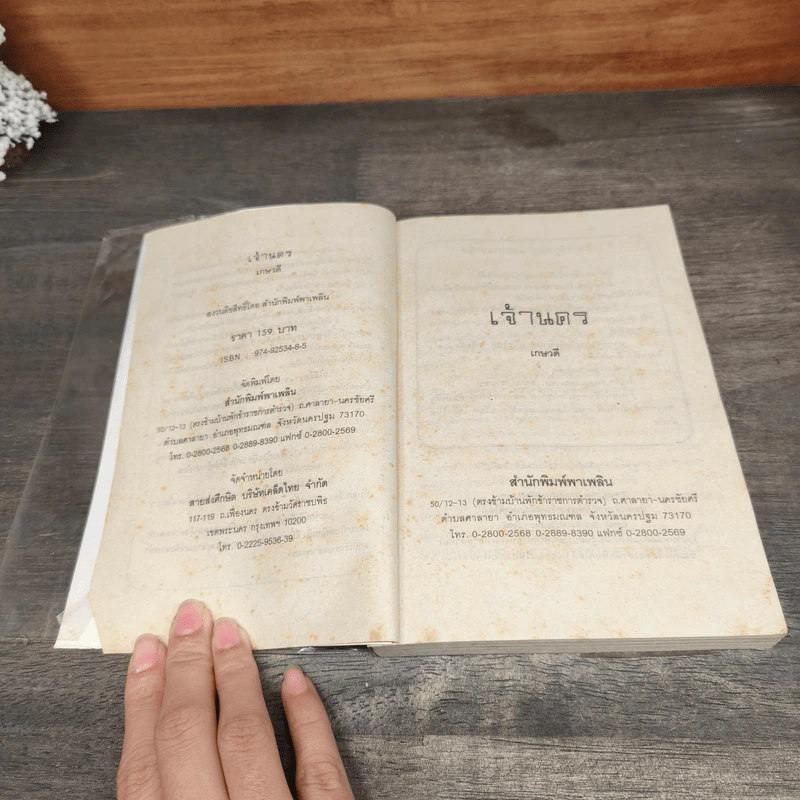 เจ้านคร
เกษวดี
สงวนลิขสิทธิ์โดย สำนักพิมพ์พาเพลิน
ราคา 159 บาท
ISBN : 974-92534-8-5
จัดพิมพ์โดย
สำนักพิมพ์พาเพลิน
50/12-13 (ตรงข้ามบ้านพักข้าราชการตำรวจ) ถ.ศาลายา-นครชัยศรี
ตำบลศาลายา อำเภอพุทธมณฑล จังหวัดนครปฐม 73170
โทร. 0-2800-2568 0-2889-8390 แฟกซ์ 0-2800-2569
จัดจำหน่ายโดย
สายส่งศึกษิต บริษัทเคล็ดไทย จำกัด
117-119 ถ.เฟื่องนคร ตรงข้ามวัดราชบพิธ
เขตพระนคร กรุงเทพฯ 10200
โทร. 0-2225-9536-39
เจ้านคร
เกษวดี
สำนักพิมพ์พาเพลิน
50/12-13 (ตรงข้ามบ้านพักข้าราชการตำรวจ) ถ.ศาลายา-นครชัยศรี
ตำบลศาลายา อำเภอพุทธมณฑล จังหวัดนครปฐม 73170
โทร. 0-2800-2568 0-2889-8390 แฟกซ์ 0-2800-2569